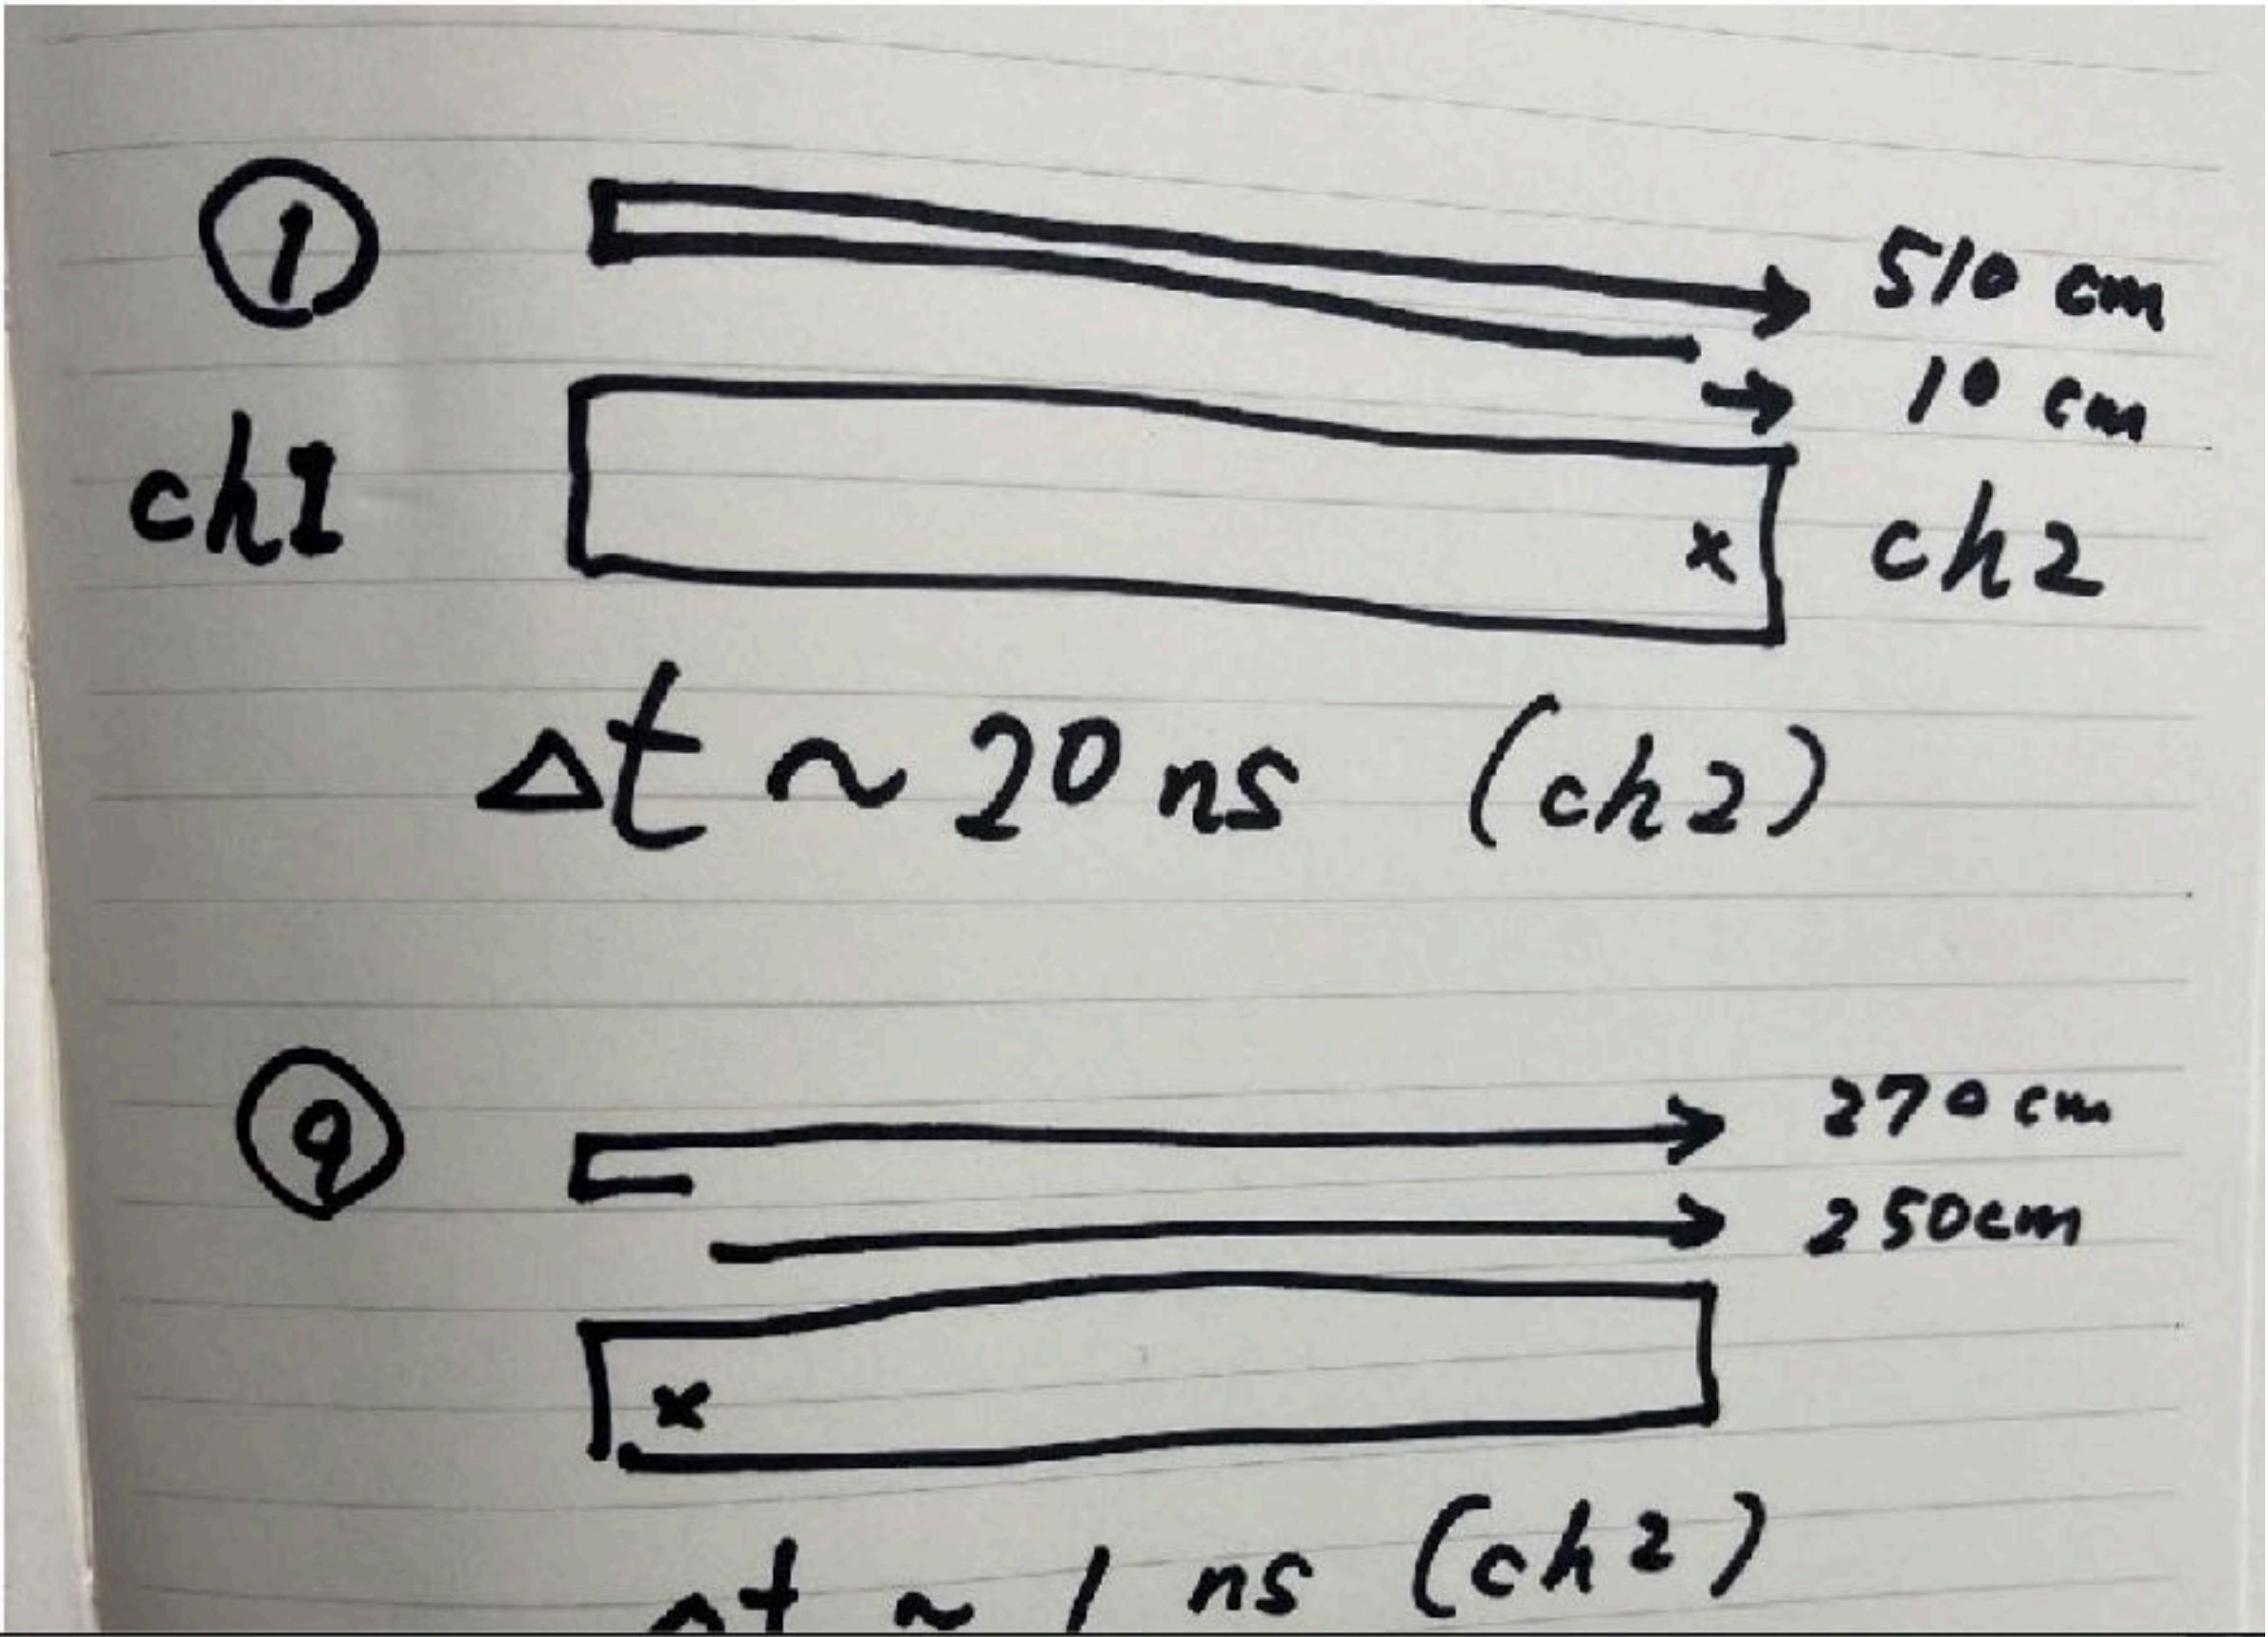 ①
510 cm
10 cm
ch1
x
ch2
Δt ~ 20 ns (ch2)
⑨
270 cm
250cm
x
Δt ~ 1 ns (ch2)